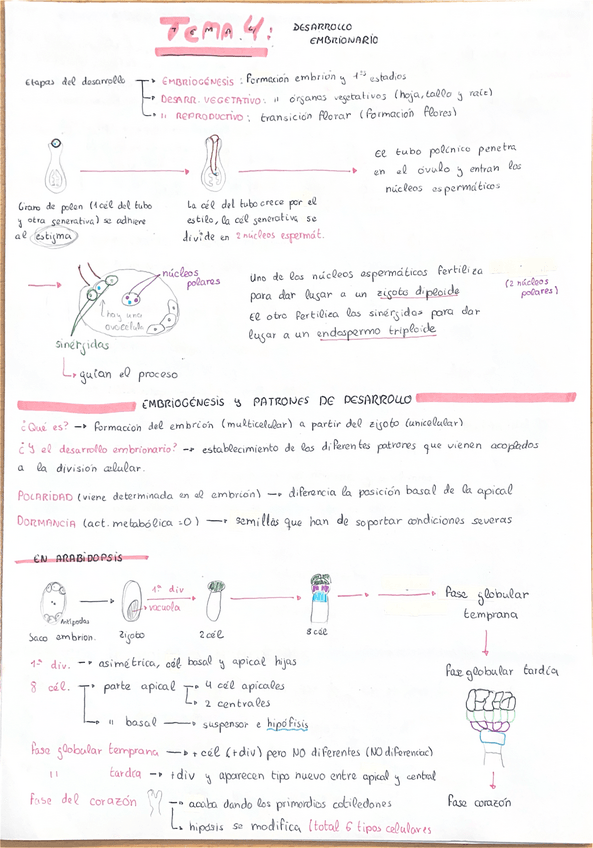 TEMA 4:
DESARROLLO
EMBRIONARIO
Etapas del desarrollo → EMBRIOGÉNESIS : Formación embrión y 1ºs estadios
→ DESARR. VEGETATIVO : " órganos vegetativos (hoja, tallo y raíz)
→ " REPRODUCTIVO : transición florar (formación flores)
El tubo polínico penetra
en el óvulo y entran los
núcleos espermáticos
Grano de polen (1 cél del tubo
y otra generativa) se adhiere
al estigma
La cél del tubo crece por el
estilo, la cél generativa se
divide en 2 núcleos espermát.
núcleos
polares
hay una
ovocélula
sinérgidas
↳ guían el proceso
Uno de los núcleos aspermáticos fertiliza
para dar lugar a un zigoto diploide
(2 núcleos
polares)
El otro fertiliza los sinérgidas para dar
lugar a un endospermo triploide
EMBRIOGÉNESIS Y PATRONES DE DESARROLLO
¿Qué es? → Formación del embrión (multicelular) a partir del zigoto (unicelular)
¿Y el desarrollo embrionario? → establecimiento de los diferentes patrones que vienen acoplados
a la división celular.
POLARIDAD (viene determinada en el embrión) → diferencia la posición basal de la apical
DORMANCIA (act. metabólica =0) → semillas que han de soportar condiciones severas
EN ARABIDOPSIS
Antípodas
Saco embrion.
Zigoto
1ª div
vacuola
2 cél
8 cél
Fase globular
temprana
Fase globular tardía
Fase corazón
1ª div. → asimétrica, cél basal y apical hijas
8 cél. → parte apical → 4 cél apicales
→ 2 centrales
→ " basal → suspensor e hipófisis
Fase globular temprana → + cél (+div) pero NO diferentes (NO diferenciac)
" tardía → +div y aparecen tipo nuevo entre apical y central
Fase del corazón → acaba dando los primordios cotiledones
↳ hipósis se modifica (total 6 tipos celulares